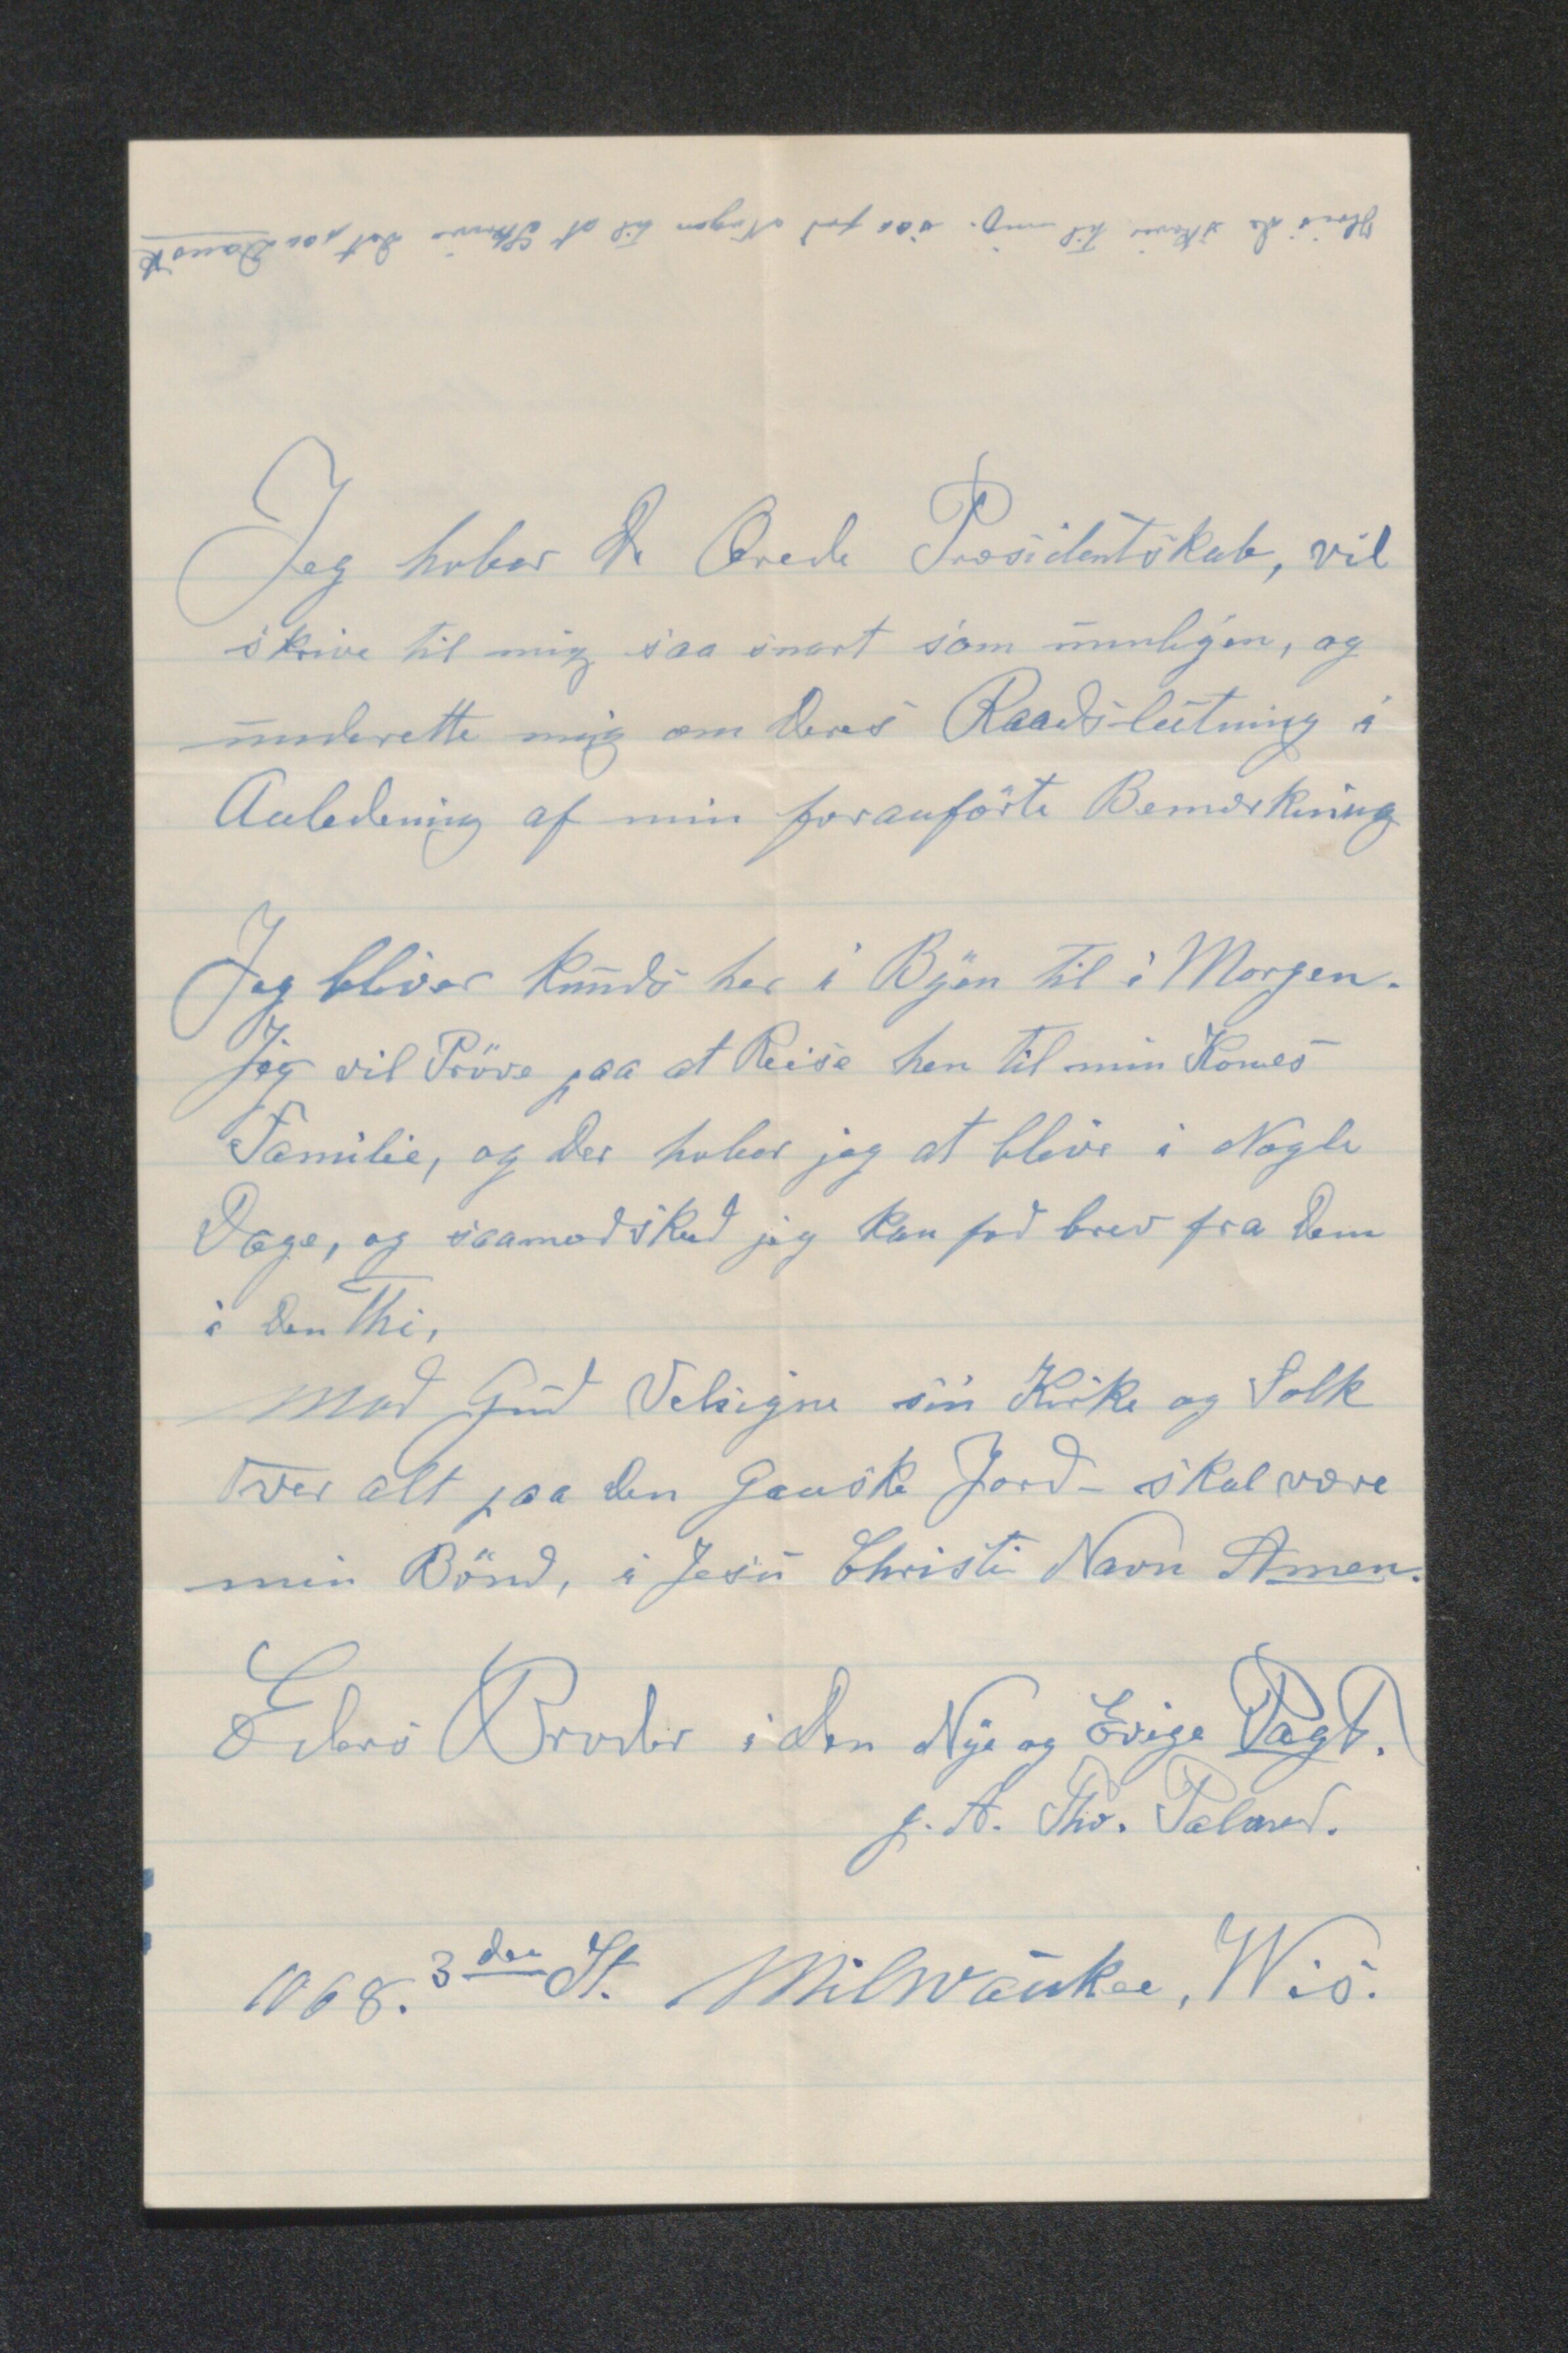 Hvis de skrive til mig. saa fad Nogen til at Skrive det paa Dansk
Jeg hober De Ærede Præsidentskab, vil
skrive til mig saa snart som munligen, og
underette mig om Deres Raadslutning i
Anledening af min foranförte Bemærkning
Jeg bliver kunds her i Byen til i Morgen.
Jeg vil Pröve paa at Reise hen til min Kones
Familie, og der hober jeg at blive i Nogle
Dage, og saamodskud jeg kan fad brev fra Dem
i den Thi,
Mad Gud Velsigne sin Kirke og Folk
Over alt paa den Ganske Jord - skal være
min Bönd, i Jesu Christi Navn Amen.
Eders Broder i den Nye og Evige Pagt.
J. A. Thr. Palmed.
1068. 3den St. Milwaukee, Wis.